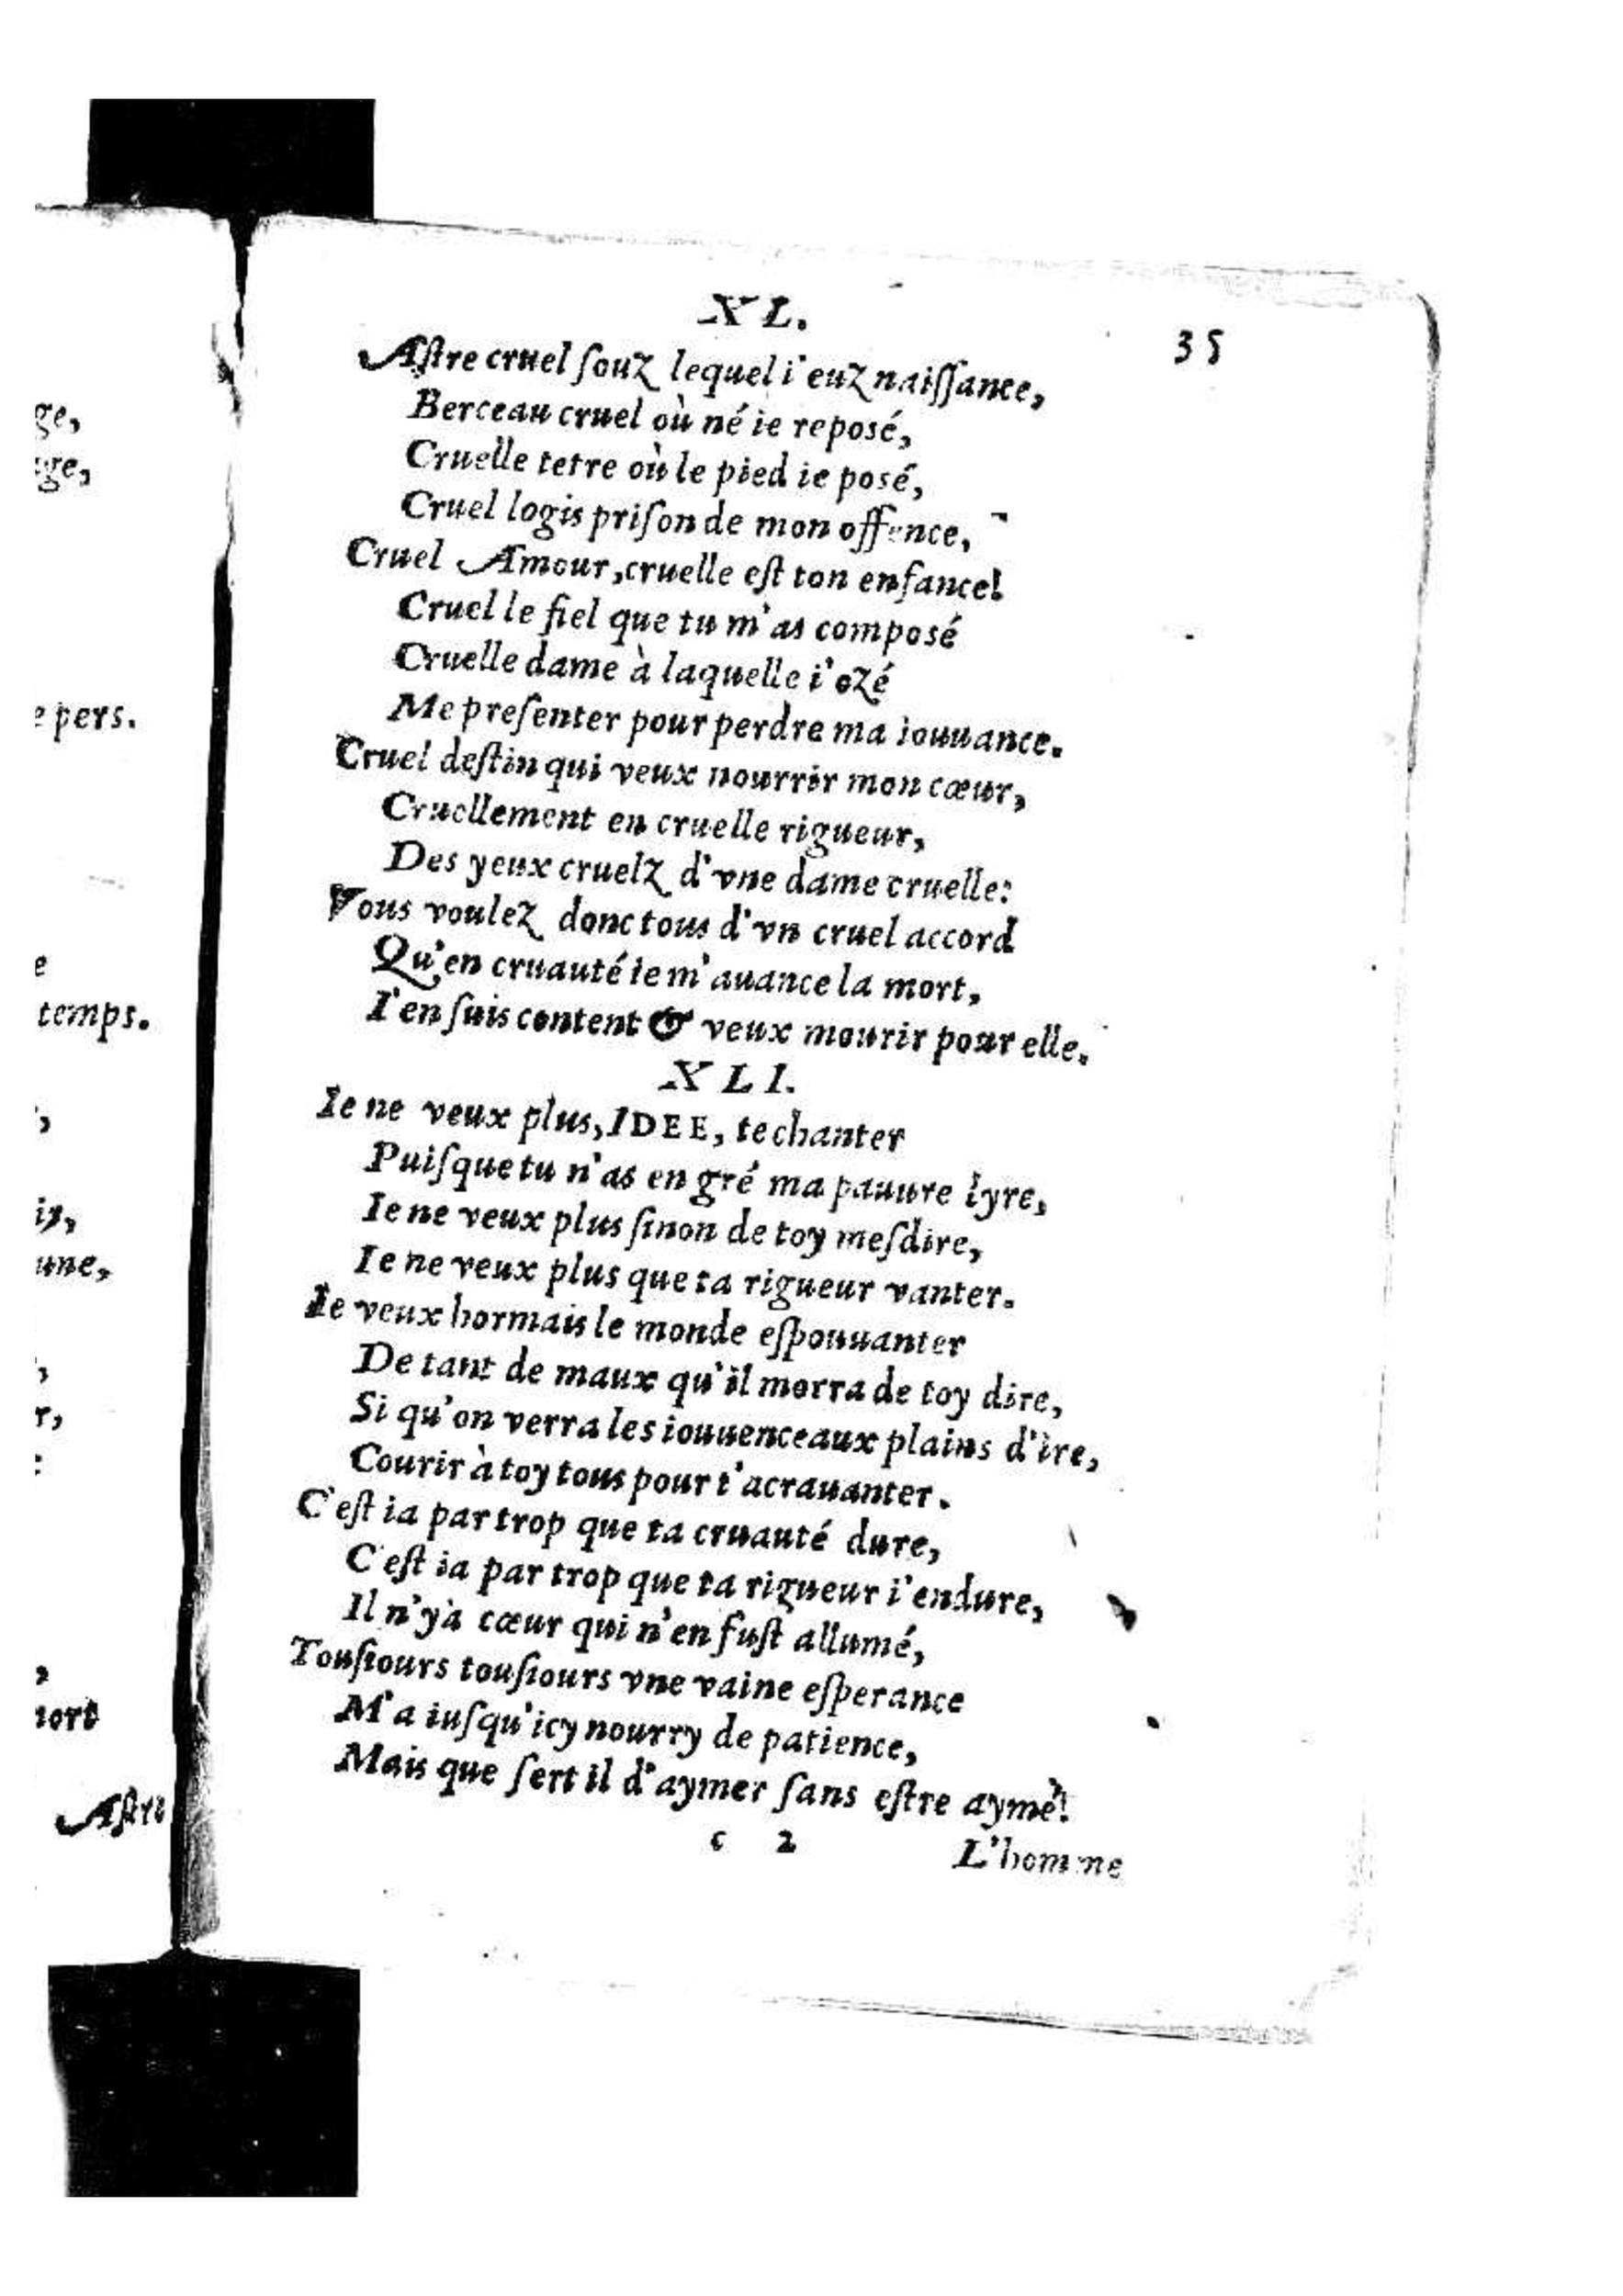 ge,
ge,
e pers.
e
temps.
,
is,
une,
,
r,
,
mort
Astre
35
XL.
Aſtre cruel ſouz lequel i'euz naiſſance,
Berceau cruel où né ie reposé,
Cruelle tetre où le pied ie posé,
Cruel logis priſon de mon offence,
Cruel Amour, cruelle eſt ton enfance!
Cruel le fiel que tu m'as composé
Cruelle dame à laquelle i'ozé
Me preſenter pour perdre ma iouuance.
Cruel deſtin qui veux nourrir mon cœur,
Cruellement en cruelle rigueur,
Des yeux cruelz d'vne dame cruelle:
Vous voulez donc tous d'vn cruel accord
Qu'en cruauté ie m'auance la mort,
I'en ſuis content & veux mourir pour elle.
XLI.
Ie ne veux plus, IDEE, te chanter
Puiſque tu n'as en gré ma pauure lyre,
Ie ne veux plus ſinon de toy meſdire,
Ie ne veux plus que ta rigueur vanter.
Ie veux hormais le monde eſpouuanter
De tant de maux qu'il morra de toy dire,
Si qu'on verra les iouuenceaux plains d'ire,
Courir à toy tous pour t'acrauanter.
C'eſt ia par trop que ta cruauté dure,
C'eſt ia par trop que ta rigueur i'endure,
Il n'y à cœur qui n'en fuſt allumé,
Touſiours touſiours vne vaine eſperance
M'a iuſqu'icy nourry de patience,
Mais que ſert il d'aymer ſans eſtre aymé!
c 2
L'homme